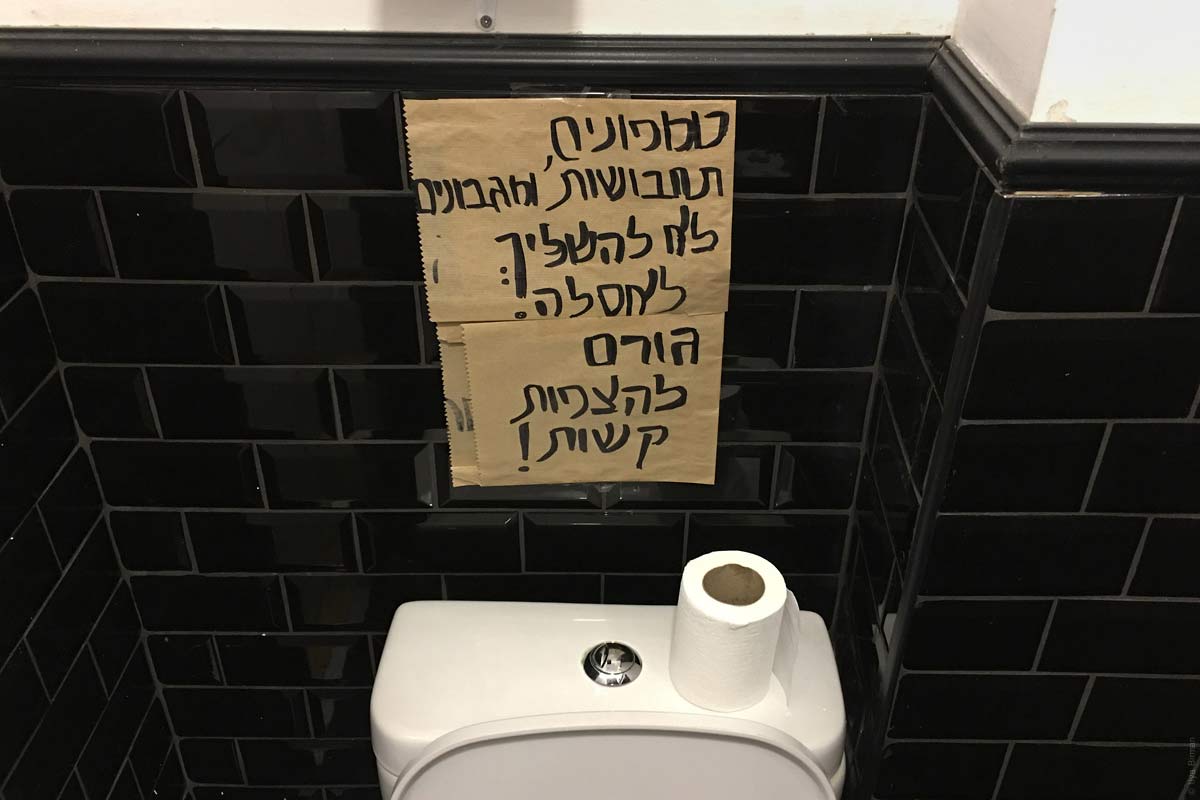 טמפונים,
תחבושות, ומגבונים
לא להשליך!
לאסלה!
גורם
להצפות
קשות!